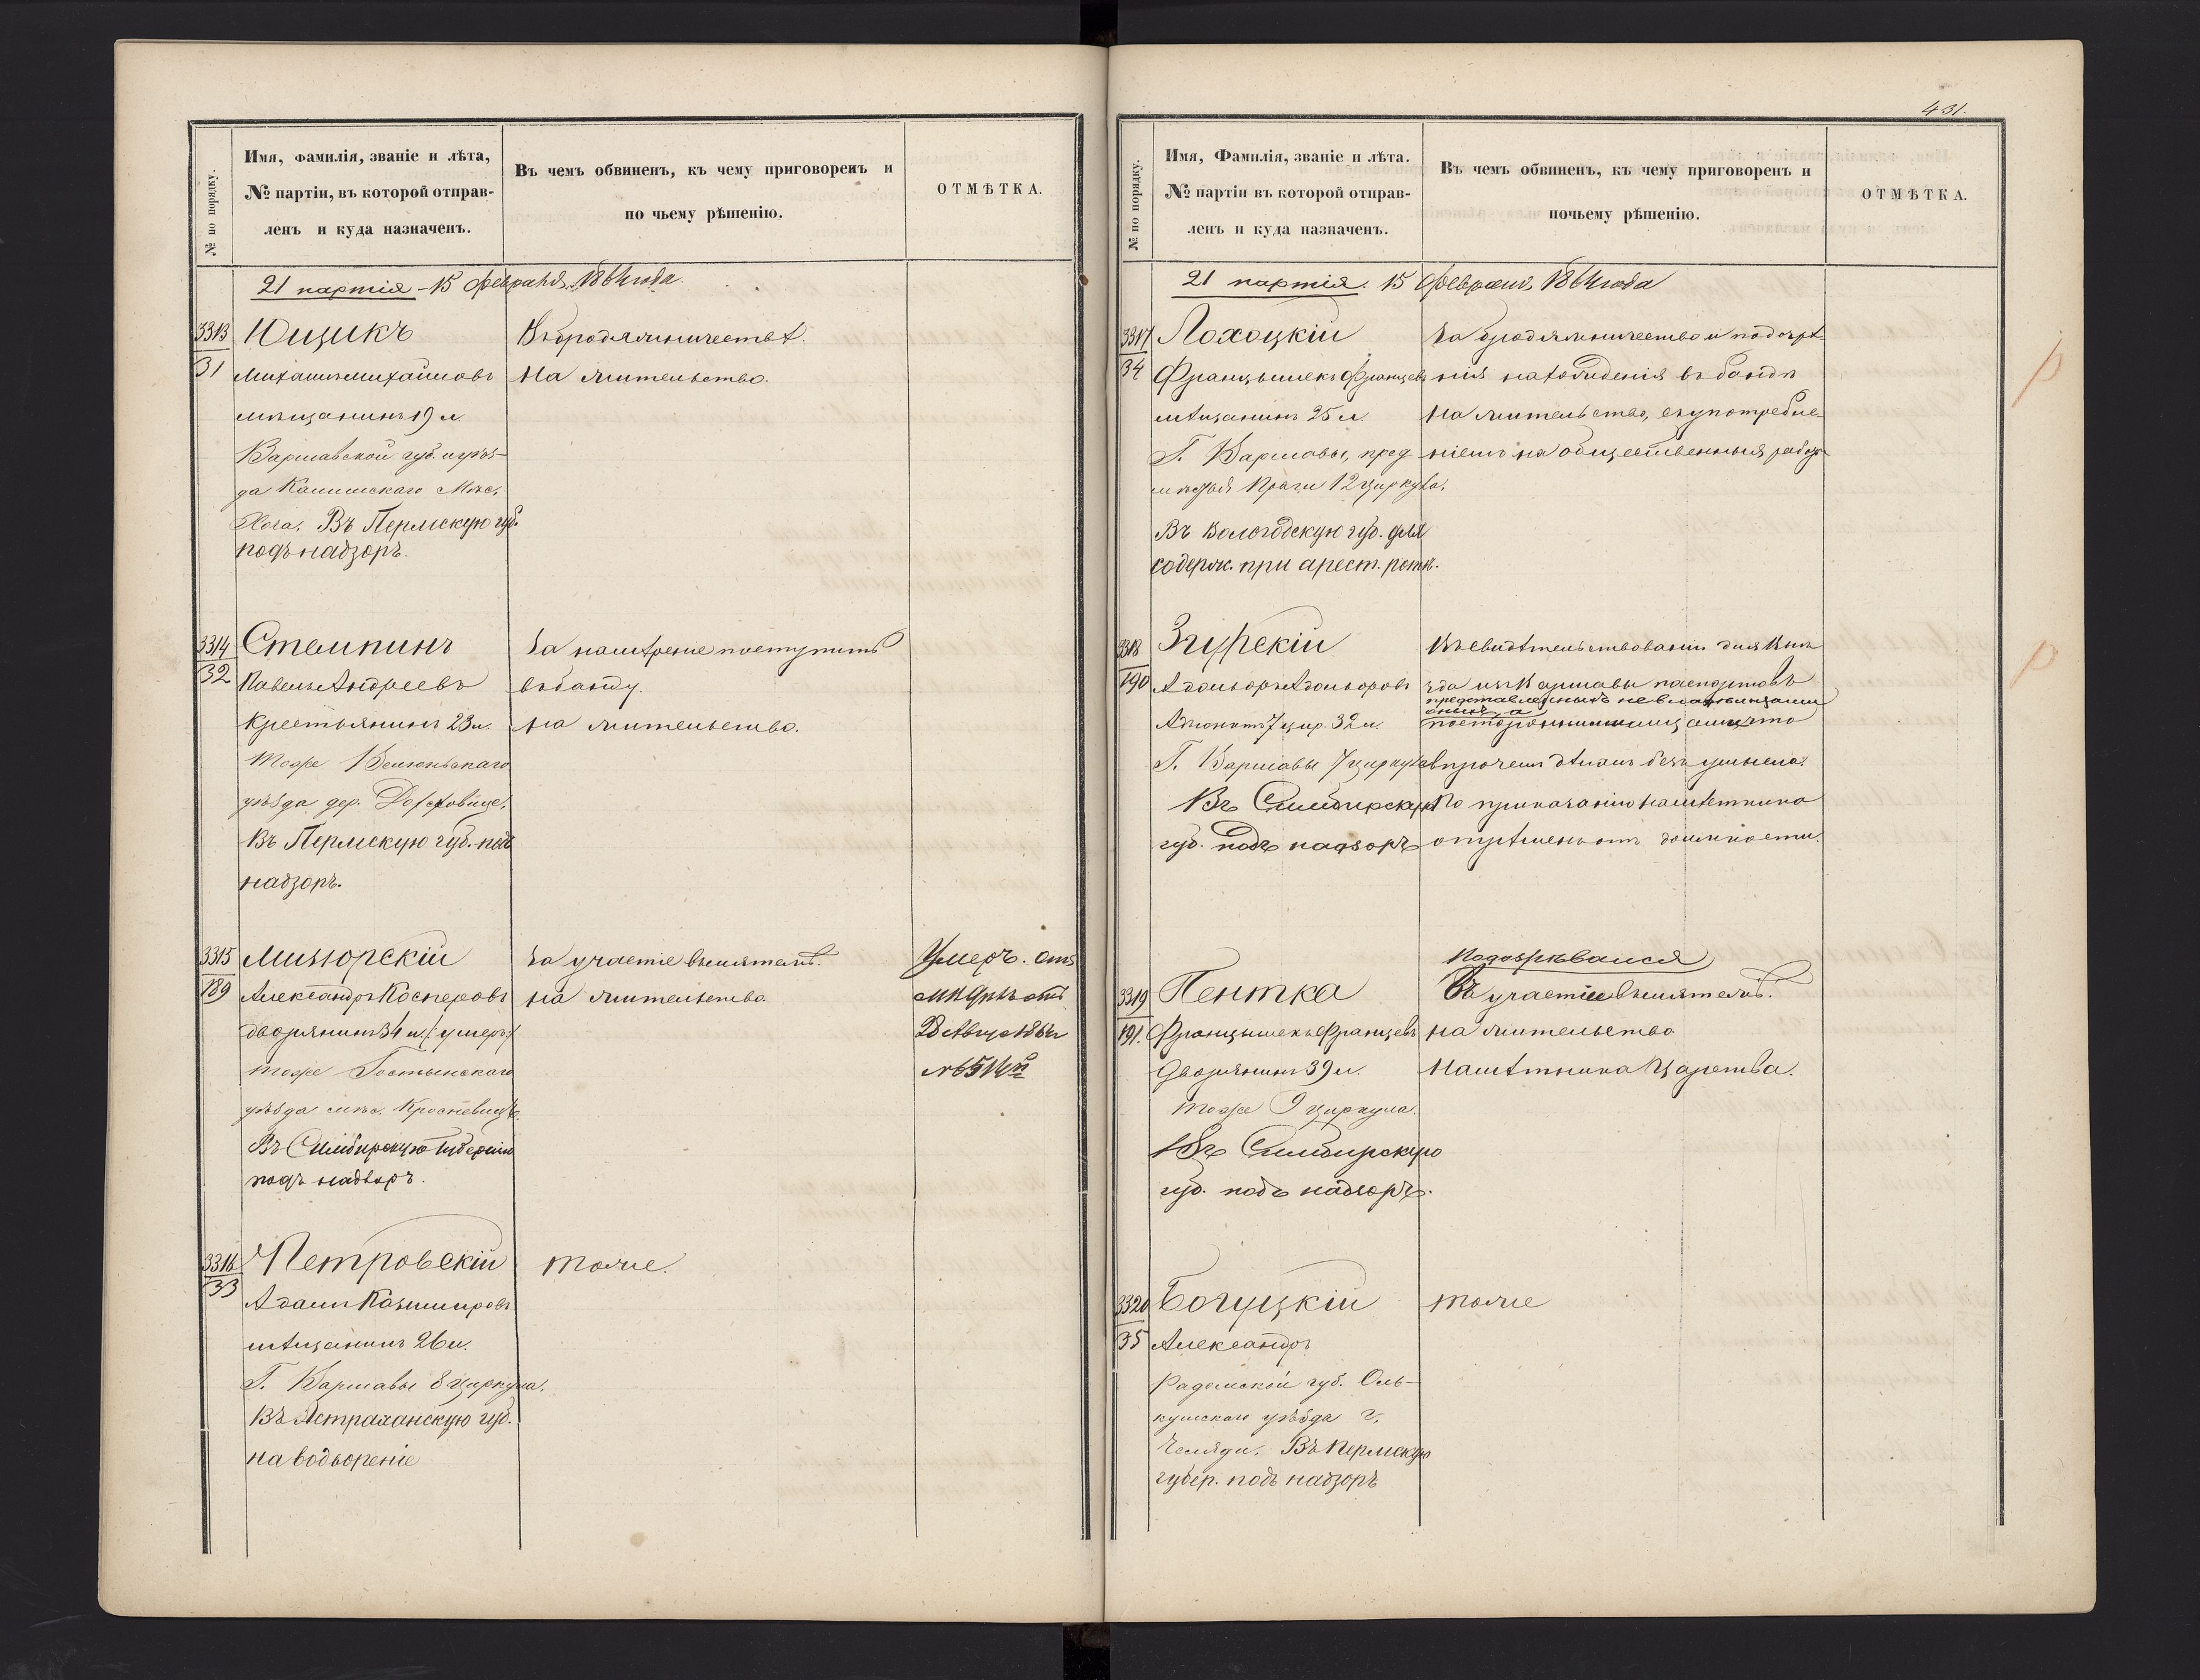 № по порядку.
Имя, фамилія, званіе и лѣта,
№ партіи, въ которой отправ-
ленъ и куда назначенъ.
Въ чемъ обвиненъ, къ чему приговоренъ и
по чьему рѣшенію.
ОТМѢТКА.
21 партія - 15 февраля 1864 года.
3313
31
Ющикъ
Михаилъ Михайловъ
мѣщанинъ 19 л.
Варшавской губ. и уѣз-
да
подъ надзоръ.
Въ Пермскую губ.
Въ бродяжничествѣ.
На жительство.
3314
32
Стемпинъ
Павелъ Андреевъ
крестьянинъ 23 л.
тоже Велюньскаго
уѣзда дер.
Въ Пермскую губ. подъ
надзоръ.
За намѣреніе поступить
въ банду.
на жительство.
3315
189
Мильорскій
Александръ Касперовъ
дворянинъ 34 л. (умеръ)
тоже Гостынскаго
уѣзда мѣс.
Въ Симбирскую Губернію
подъ надзоръ.
За участіе въ мятежѣ.
на жительство
Умеръ. отъ
3316
33
Петровскій
Адамъ Казимировъ
мѣщанинъ 26 л.
Г. Варшавы 8 циркула.
Въ Астраханскую губ.
на водвореніе
тоже.
431.
№ по порядку.
Имя, Фамилія, званіе и лѣта.
№ партіи въ которой отправ-
ленъ и куда назначенъ.
Въ чемъ обвиненъ, къ чему приговоренъ и
почьему рѣшенію.
ОТМѢТКА.
21 партія. 15 февраля 1864 года
3317
34
Лохоцкій
Францышекъ Францевъ
мѣщанинъ 25 л.
Г. Варшавы, пред
мѣстья Праги 12 циркула.
Въ Вологодскую губ. для
содерж. при арест. ротѣ.
За бродяжничество и подозрѣ
нія нахожденія въ бандѣ
На жительство, съ употребле
ніемъ на общественныя работы
3318
190
Згурскій
Адольфъ Адольфовъ
7 цир. 32 л.
Г. Варшавы 7 циркула
Въ Симбирскую
губ. подъ надзоръ
Въ свидѣтельствованіи для выѣ
зда изъ Варшавы паспортовъ
представленныхъ не владѣльцами
оныхъ, а
посторонними лицами, что
впрочемъ дѣлалъ безъ умысла.
По приказанію Намѣстника
отрѣшенъ отъ должности.
3319
191.
Пентка
Францышекъ Францевъ
дворянинъ 39 л.
тоже 9 циркула.
Въ Симбирскую
губ. подъ надзоръ.
Подозрѣвался
Въ участіе въ мятежѣ.
на жительство
Намѣстника Царства.
3320
35
Богуцкій
Александръ
Радомской губ. Оль-
кушскаго уѣзда г.
Челяди. Въ Пермскую
губер. подъ надзоръ
тоже